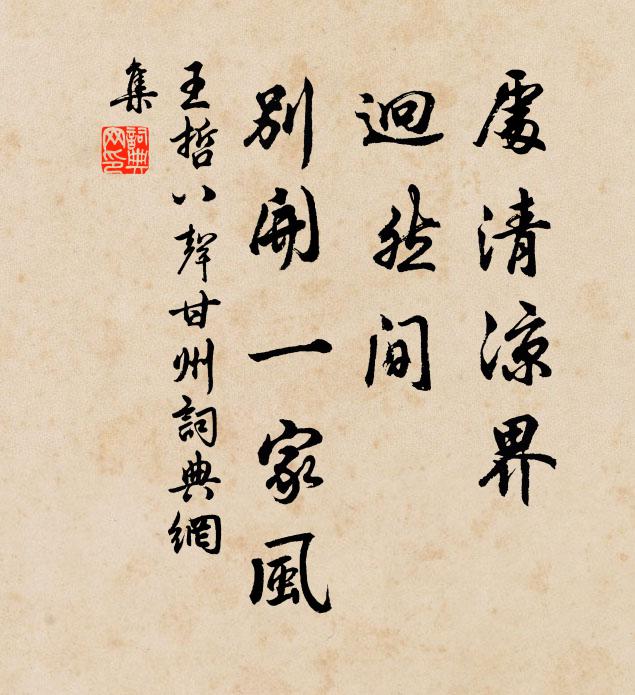 處清涼界
迥然間
別開一家風
王哲八聲甘州詞典網
集
詞典
网印